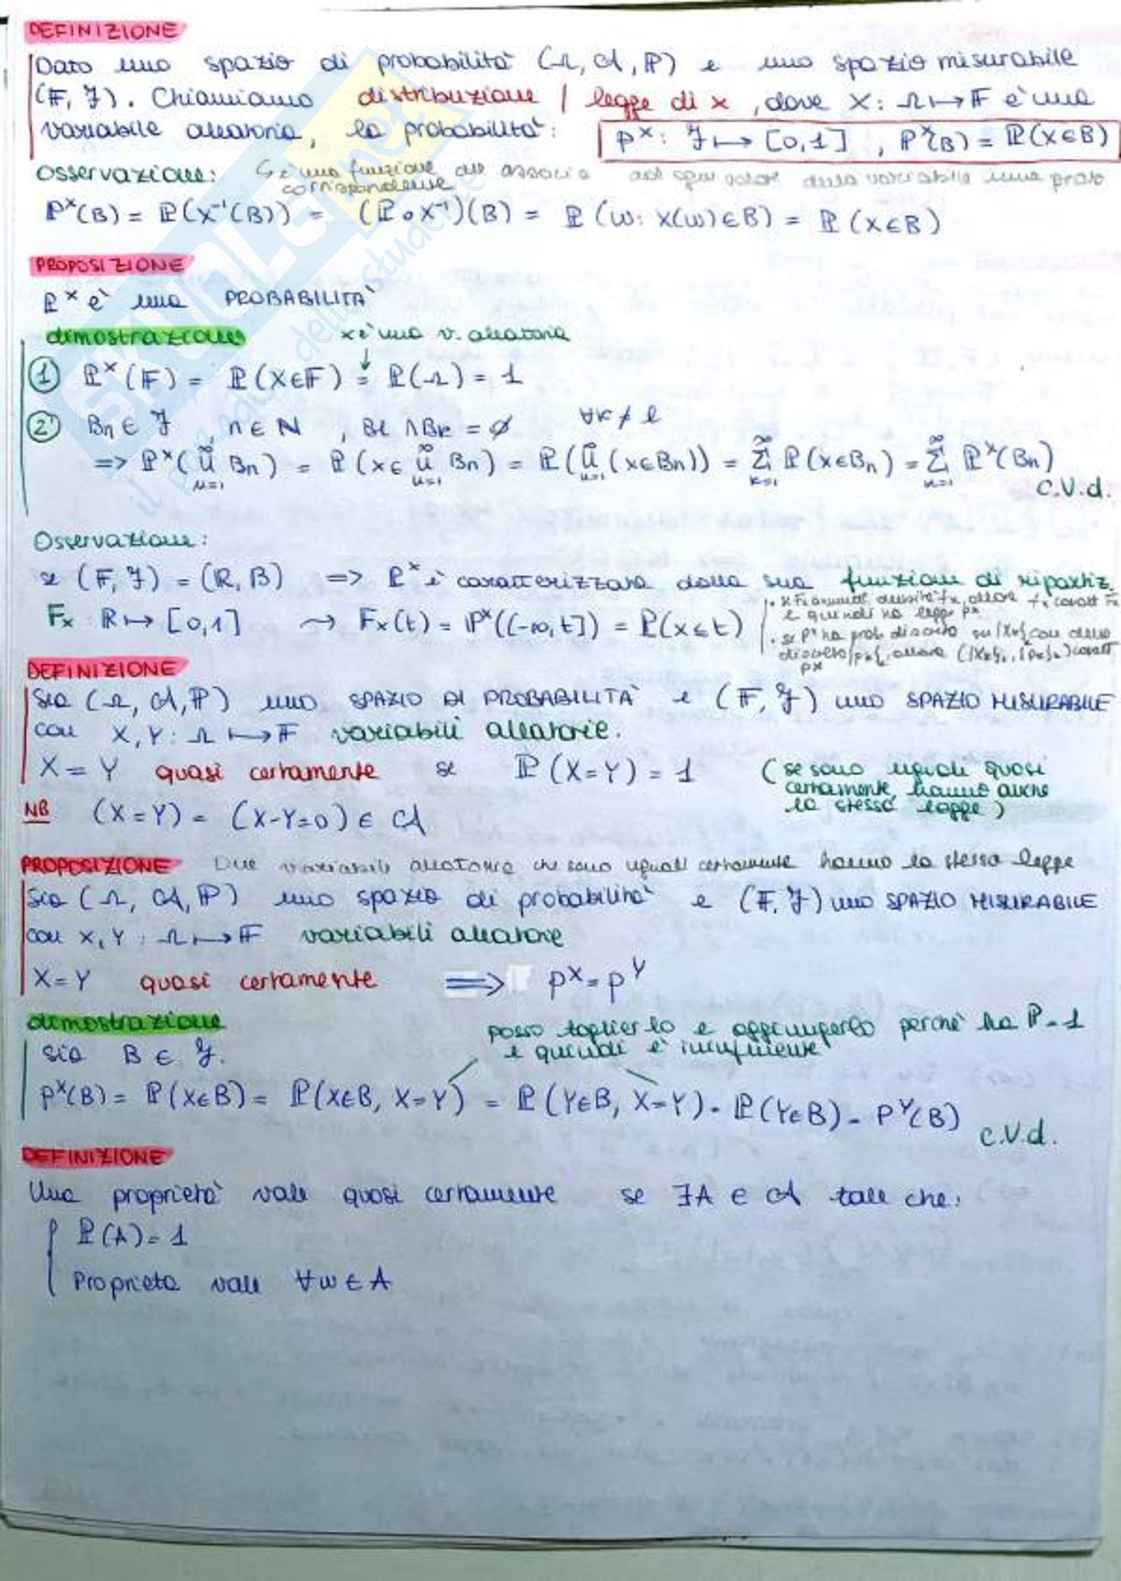 DEFINIZIONE
Dato uno spazio di probabilità (Ω, 𝒜, ℙ) e uno spazio misurabile
(𝔽, ℱ). Chiamiamo distribuzione / legge di x, dove X: Ω ↦ 𝔽 è una
variabile aleatoria, la probabilità: P^X: ℱ ↦ [0,1], P^X(B) = ℙ(X∈B)
Osservazione: è una funzione che associa ad ogni valore della variabile una prob
corrispondente
P^X(B) = ℙ(X⁻¹(B)) = (ℙ∘X⁻¹)(B) = ℙ(ω: X(ω)∈B) = ℙ(X∈B)
PROPOSIZIONE
ℙ^X è una PROBABILITÀ
dimostrazione x è una v. aleatoria
① ℙ^X(𝔽) = ℙ(X∈𝔽) = ℙ(Ω) = 1
② Bn ∈ ℱ, n ∈ ℕ, Bℓ ∩ Bk = ∅ ∀k ≠ ℓ
=> ℙ^X(⋃_{n=1}^∞ Bn) = ℙ(x∈ ⋃_{n=1}^∞ Bn) = ℙ(⋃_{n=1}^∞ (x∈Bn)) = Σ_{k=1}^∞ ℙ(x∈Bn) = Σ_{n=1}^∞ ℙ^X(Bn)
c.v.d.
Osservazione:
se (𝔽, ℱ) = (ℝ, B) => ℙ^X è caratterizzata dalla sua funzione di ripartiz.
Fx: ℝ ↦ [0,1] ⇝ Fx(t) = ℙ^X((-∞, t]) = ℙ(x≤t)
• se Fx ammette densità fx, allora fx caratt Fx
e quindi ha legge P^X
• se P^X ha prob discreta su {xk} con densità
discreta {pk}, allora ({xk}, {pk}) caratt
P^X
DEFINIZIONE
Sia (Ω, 𝒜, ℙ) uno SPAZIO DI PROBABILITÀ e (𝔽, ℱ) uno SPAZIO MISURABILE
con X, Y: Ω ↦ 𝔽 variabili aleatorie.
X = Y quasi certamente se ℙ(X=Y) = 1 (se sono uguali quasi
certamente hanno anche
la stessa legge)
NB (X=Y) = (X-Y=0) ∈ 𝒜
PROPOSIZIONE Due variabili aleatorie che sono uguali certamente hanno la stessa legge
Sia (Ω, 𝒜, ℙ) uno spazio di probabilità e (𝔽, ℱ) uno SPAZIO MISURABILE
con X, Y: Ω ↦ 𝔽 variabili aleatorie
X=Y quasi certamente ⟹ P^X = P^Y
dimostrazione posso toglierlo e aggiungerlo perchè ha ℙ=1
e quindi è ininfluente
Sia B ∈ ℱ.
P^X(B) = ℙ(X∈B) = ℙ(X∈B, X=Y) = ℙ(Y∈B, X=Y) = ℙ(Y∈B) = P^Y(B)
c.v.d.
DEFINIZIONE
Una proprietà vale quasi certamente se ∃A ∈ 𝒜 tale che:
ℙ(A) = 1
Proprietà vale ∀ω∈A